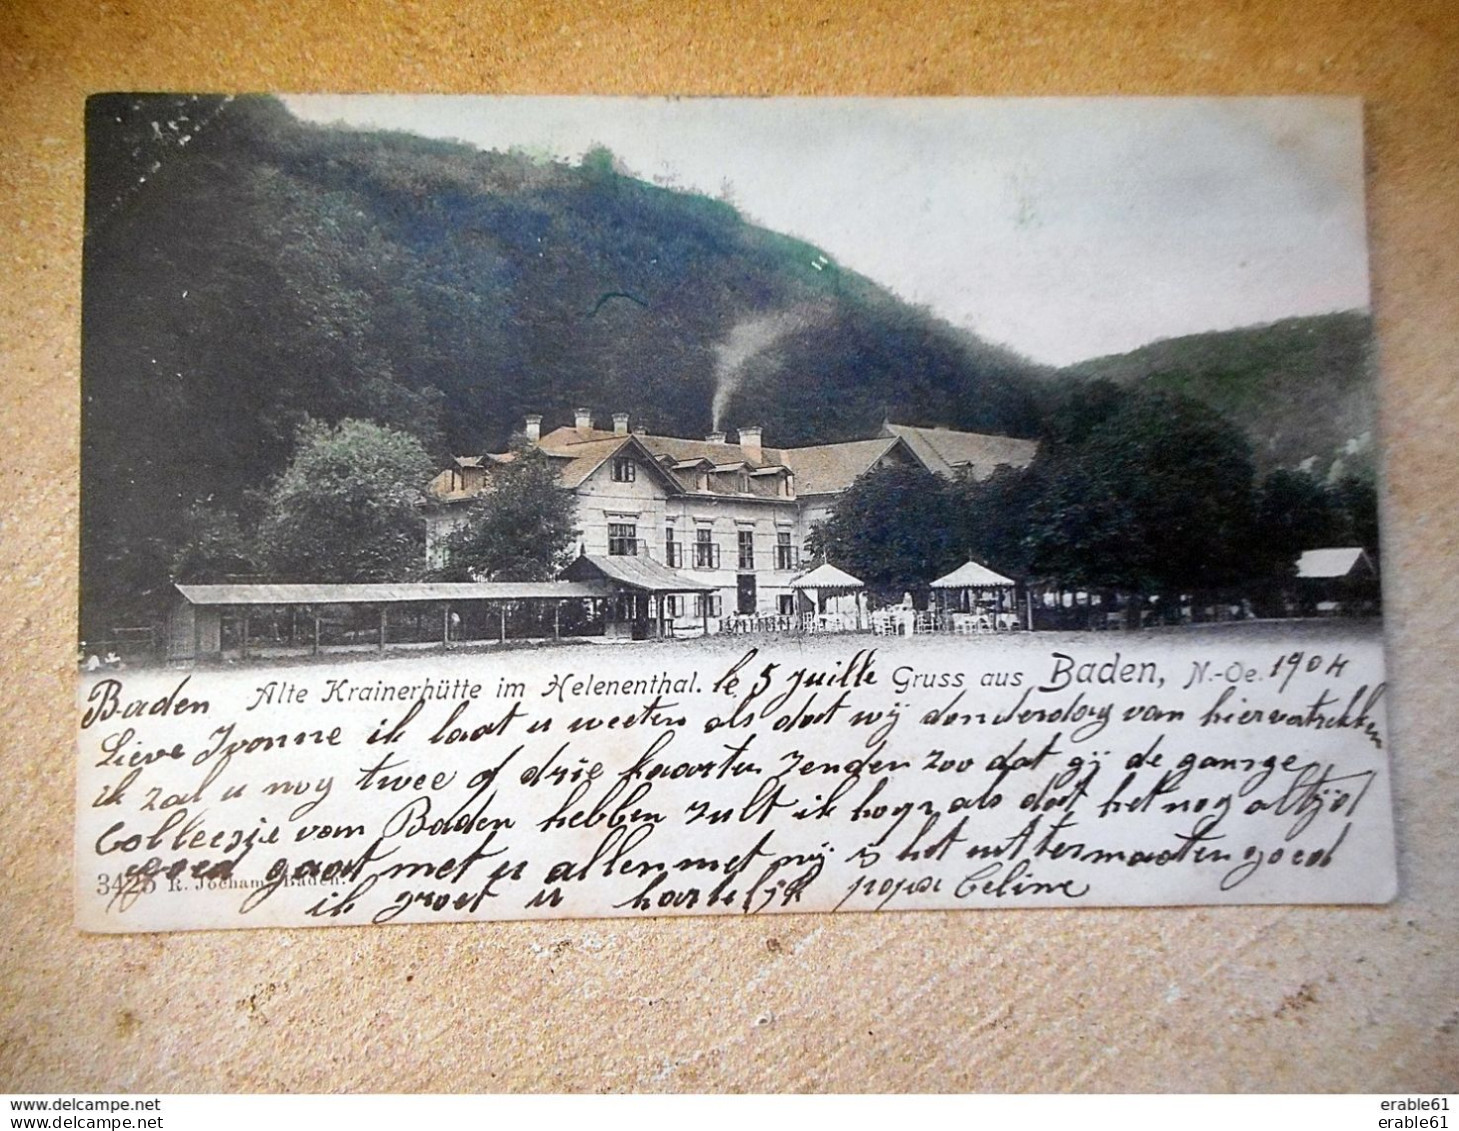 Baden Alte Krainerhütte im Helenenthal. le 5 Juille Gruss aus Baden, N.-Oe. 1904
Lieve Ivonne ik laat u weeten als dat wij donderdag van hier vertrekken
ik zal u nog twee of drie kaarten zenden zoo dat gij de gansge
Colleesie van Baden hebben zult ik hope als dat het nog altijd
goed gaat met u allen met mij is het uittermaaten goed
3425 R. Jocham, Baden.
ik groet u hartelijk Celine
erable61
erable61
erable61
erable61